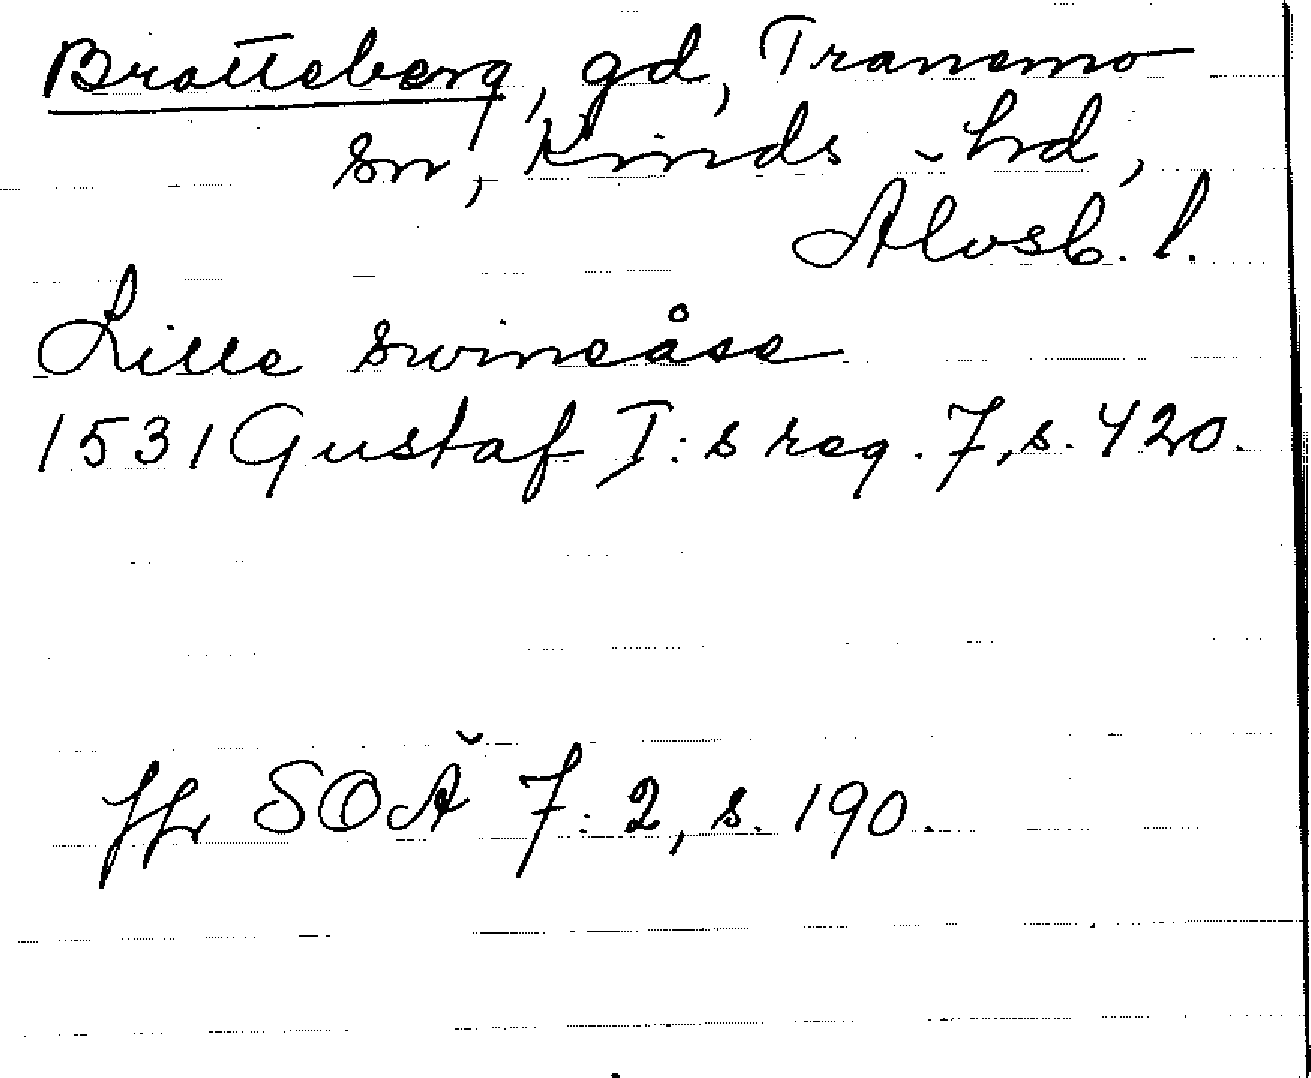 Bratteberg, gd, Tranemo
sn, Kinds hrd,
Älvsb. l.
Lille swineåse
1531 Gustaf I:s reg. 7, s. 420.
Jfr SOÄ 7:2, s. 190.